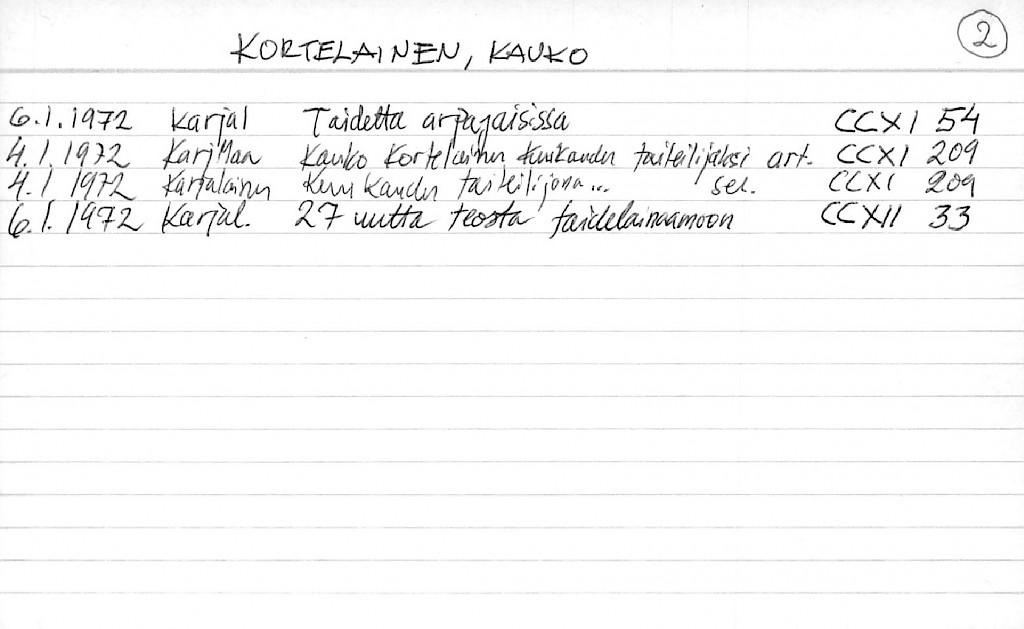 2
KORTELAINEN, KAUKO
6.1.1972 Karjal Taidetta arpajaisissa CCXI 54
4.1.1972 Karj Maa Kauko Kortelainen kuukauden taiteilijaksi art. CCXI 209
4.1 1972 Karjalainen Kuukauden taiteilijana... sel. CCXI 209
6.1.1972 Karjal. 27 uutta teosta taidelainaamoon CCXII 33